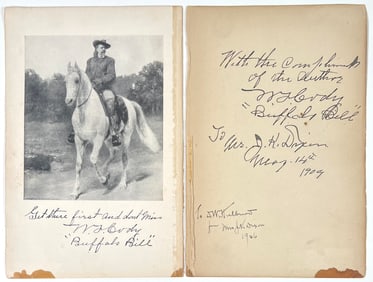 Get there first and don't Miss
W F Cody
"Buffalo Bill"
With the Compliments
of the Author
W F Cody
"Buffalo Bill"
To
Mr. J. K. Dixon
May - 14th
1909
To
1926